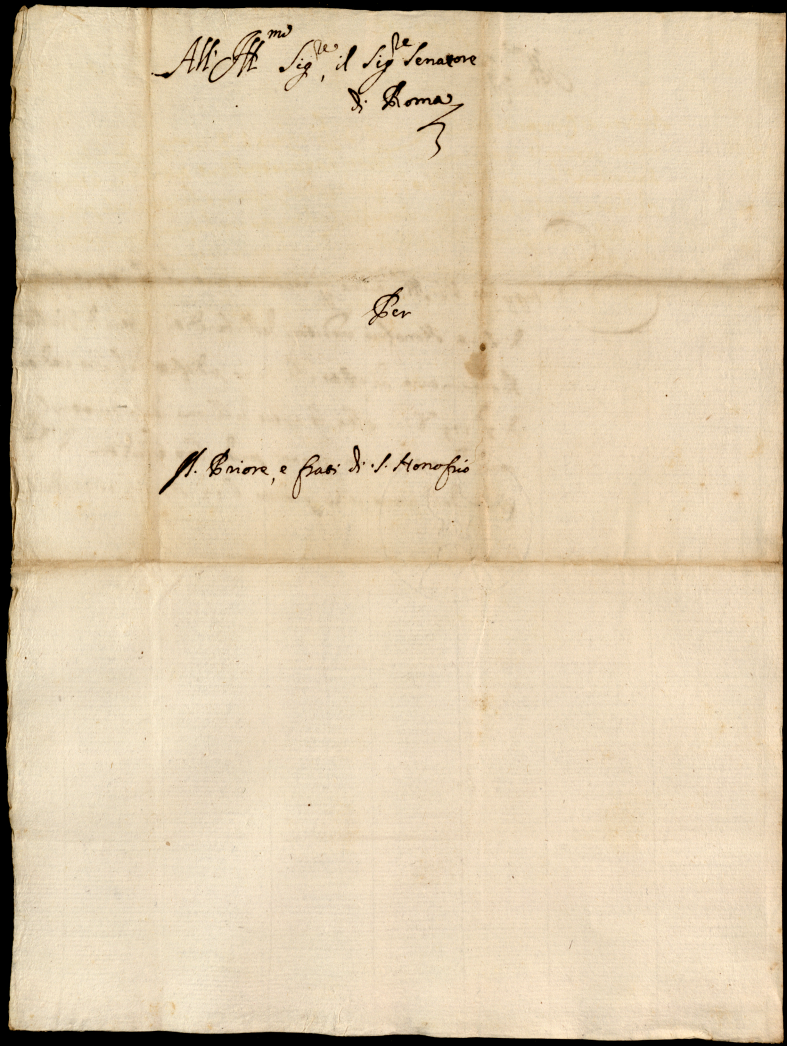 All' Ill.mo Sig.re, il Sig.re Senatore
di Roma
Per
Il Priore, e frati di S. Honofrio